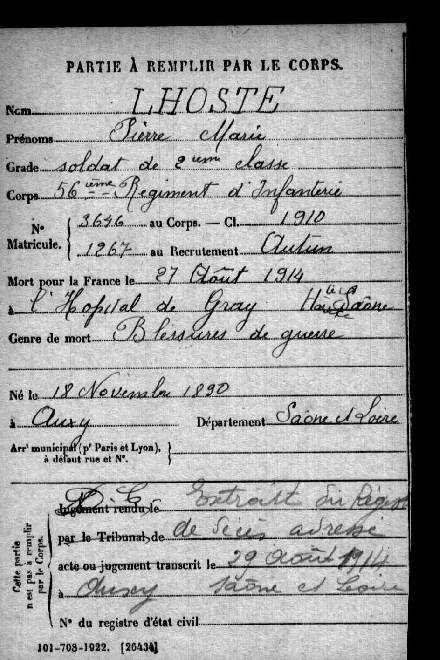 PARTIE À REMPLIR PAR LE CORPS.
Nom LHOSTE
Prénoms Pierre Marie
Grade soldat de 2eme classe
Corps 56eme Régiment d'Infanterie
N° Matricule. { 3646 au Corps. — Cl. 1910
1267 au Recrutement Autun
Mort pour la France le 27 Août 1914
à l'Hopital de Gray Hte Saône
Genre de mort Blessures de guerre
Né le 18 Novembre 1890
à Auxy Département Saône et Loire
Arrt municipal (pr Paris et Lyon), à défaut rue et N°. }
Cette partie n'est pas à remplir par le Corps.
Jugement rendu le Extrait du Régist
par le Tribunal de de décès adressé
acte ou jugement transcrit le 29 Août 1914
à Auxy Saône et Loire
N° du registre d'état civil
101-708-1922. [26434]